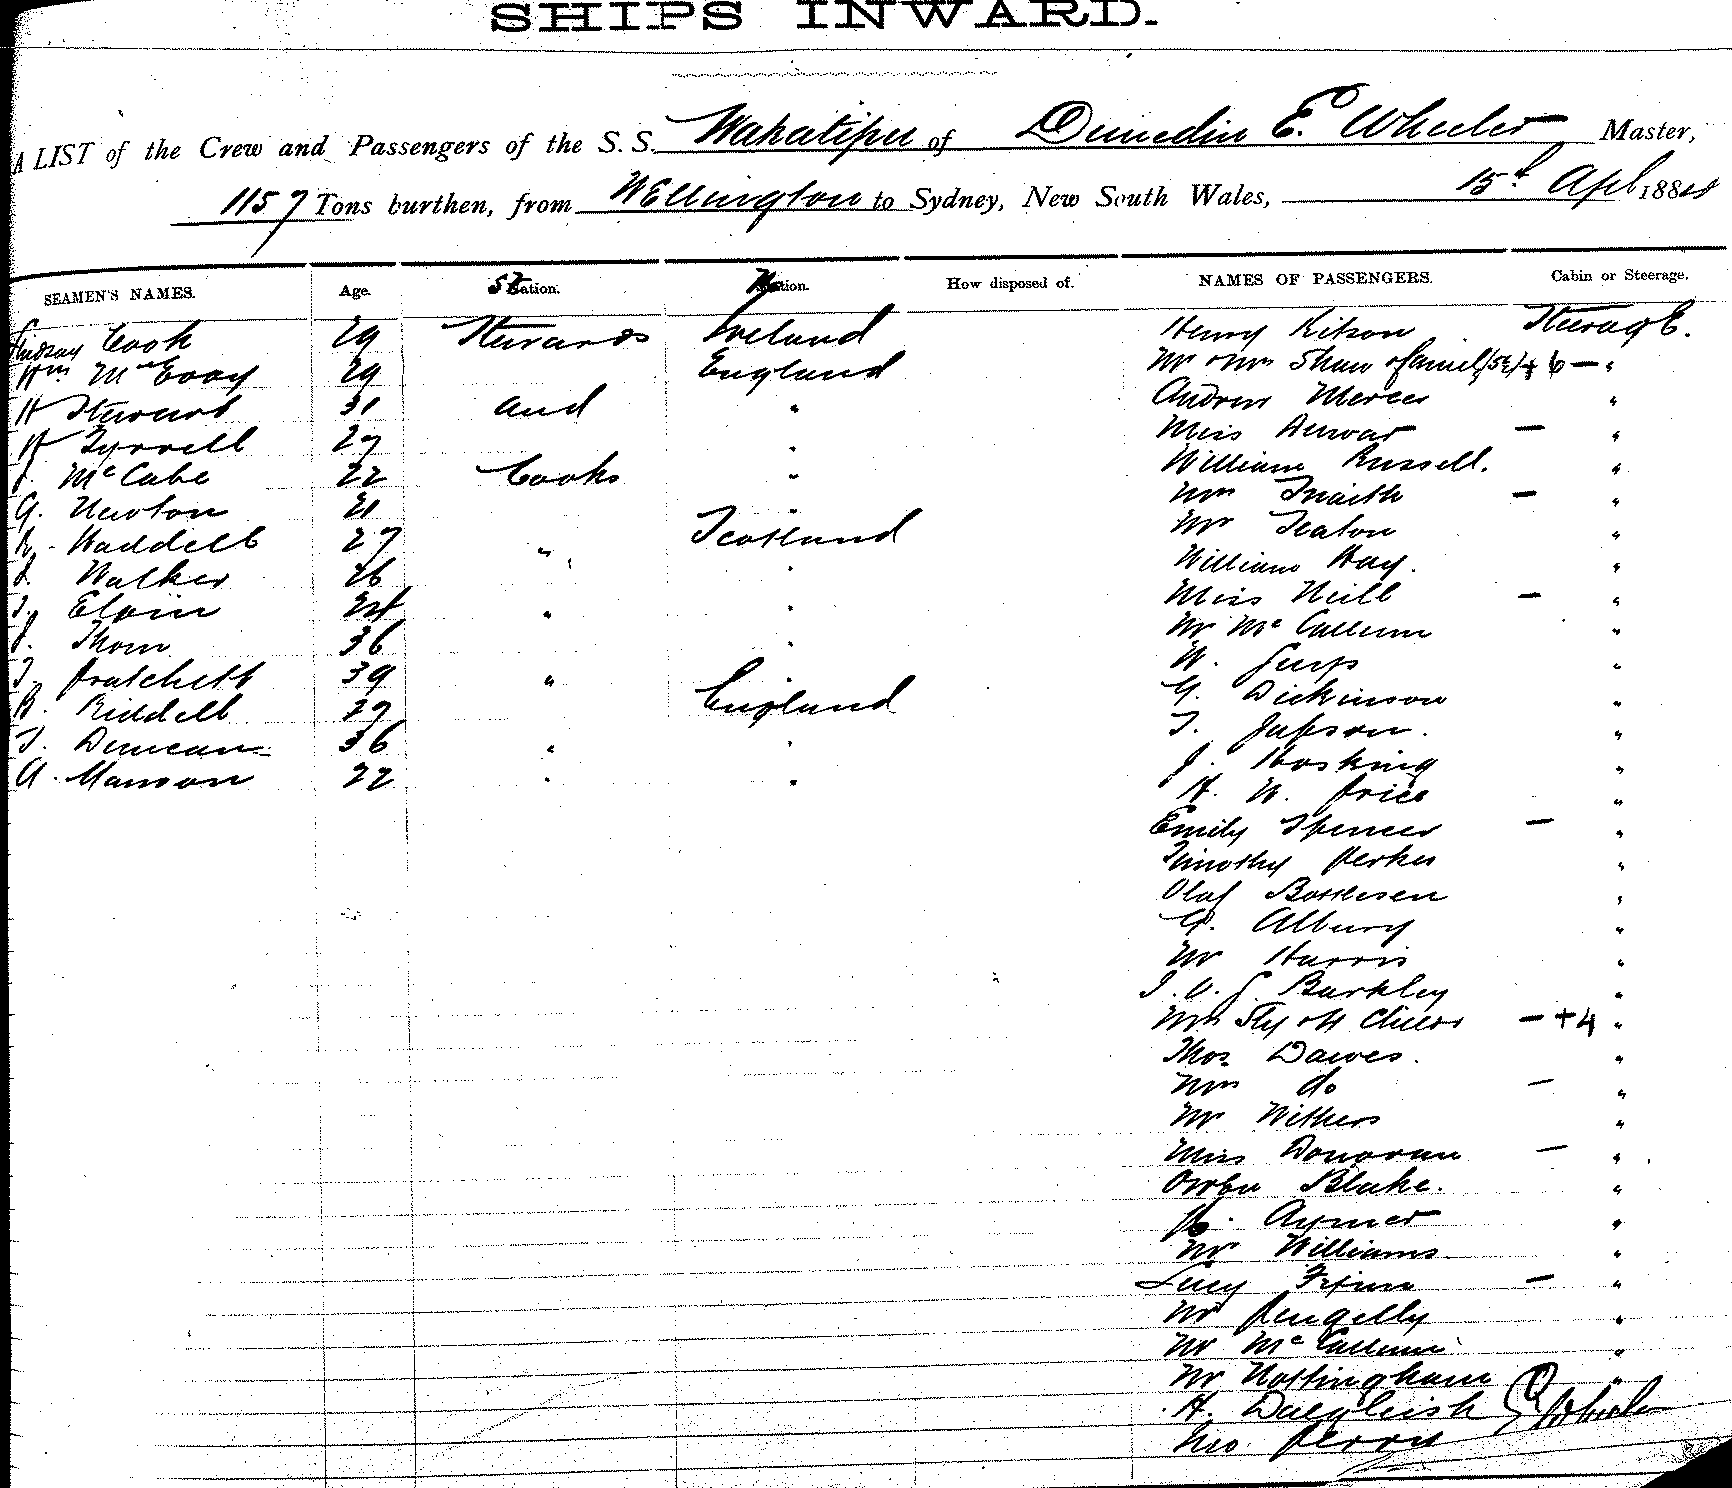 SHIPS INWARD.
A LIST of the Crew and Passengers of the S.S. Wakatipu of Dunedin E. Wheeler Master,
1157 Tons burthen, from Wellington to Sydney, New South Wales, 15th Apl 1884
SEAMEN'S NAMES. Age. Station. Nation. How disposed of. NAMES OF PASSENGERS. Cabin or Steerage.
Lindsay Cook 29 Stewards Ireland Henry Kitson Steerage.
Wm McEvoy 29 England Mr & Mrs Shaw & family (5) + 6 — "
H Stewart 31 and " Andrew Mercer "
H Tyrrell 27 " Miss Dewar — "
J. McCabe 22 Cooks " William Russell. "
G. Newton 21 " Mrs Snaith — "
R. Waddell 27 " Scotland Mr Seaton "
J. Walker 26 " William Hay. "
T. Elvin 24 " " Miss Neill — "
J. Thom 36 " Mr McCallum "
T. Pratchett 39 " W. "
B. Riddell 27 England G. Dickinson "
T. Duncan 36 " " T. Jepson. "
A. Manson 22 " " J. Hosking "
H. W. Price "
Emily Spencer — "
Timothy Perkes "
Olaf "
G. Albury "
Mr Harris "
Barkley "
Mrs Sly & 4 Children — + 4 "
Thos Dawes. "
Mrs do — "
Mr Withers "
Miss Donovan — "
Blake. "
Aymer "
Mr Williams "
Lucy — "
Mr Pengelly "
Mr McCallum "
Mr Nottingham "
H. Dalgleish E Wheeler
Geo. Perry